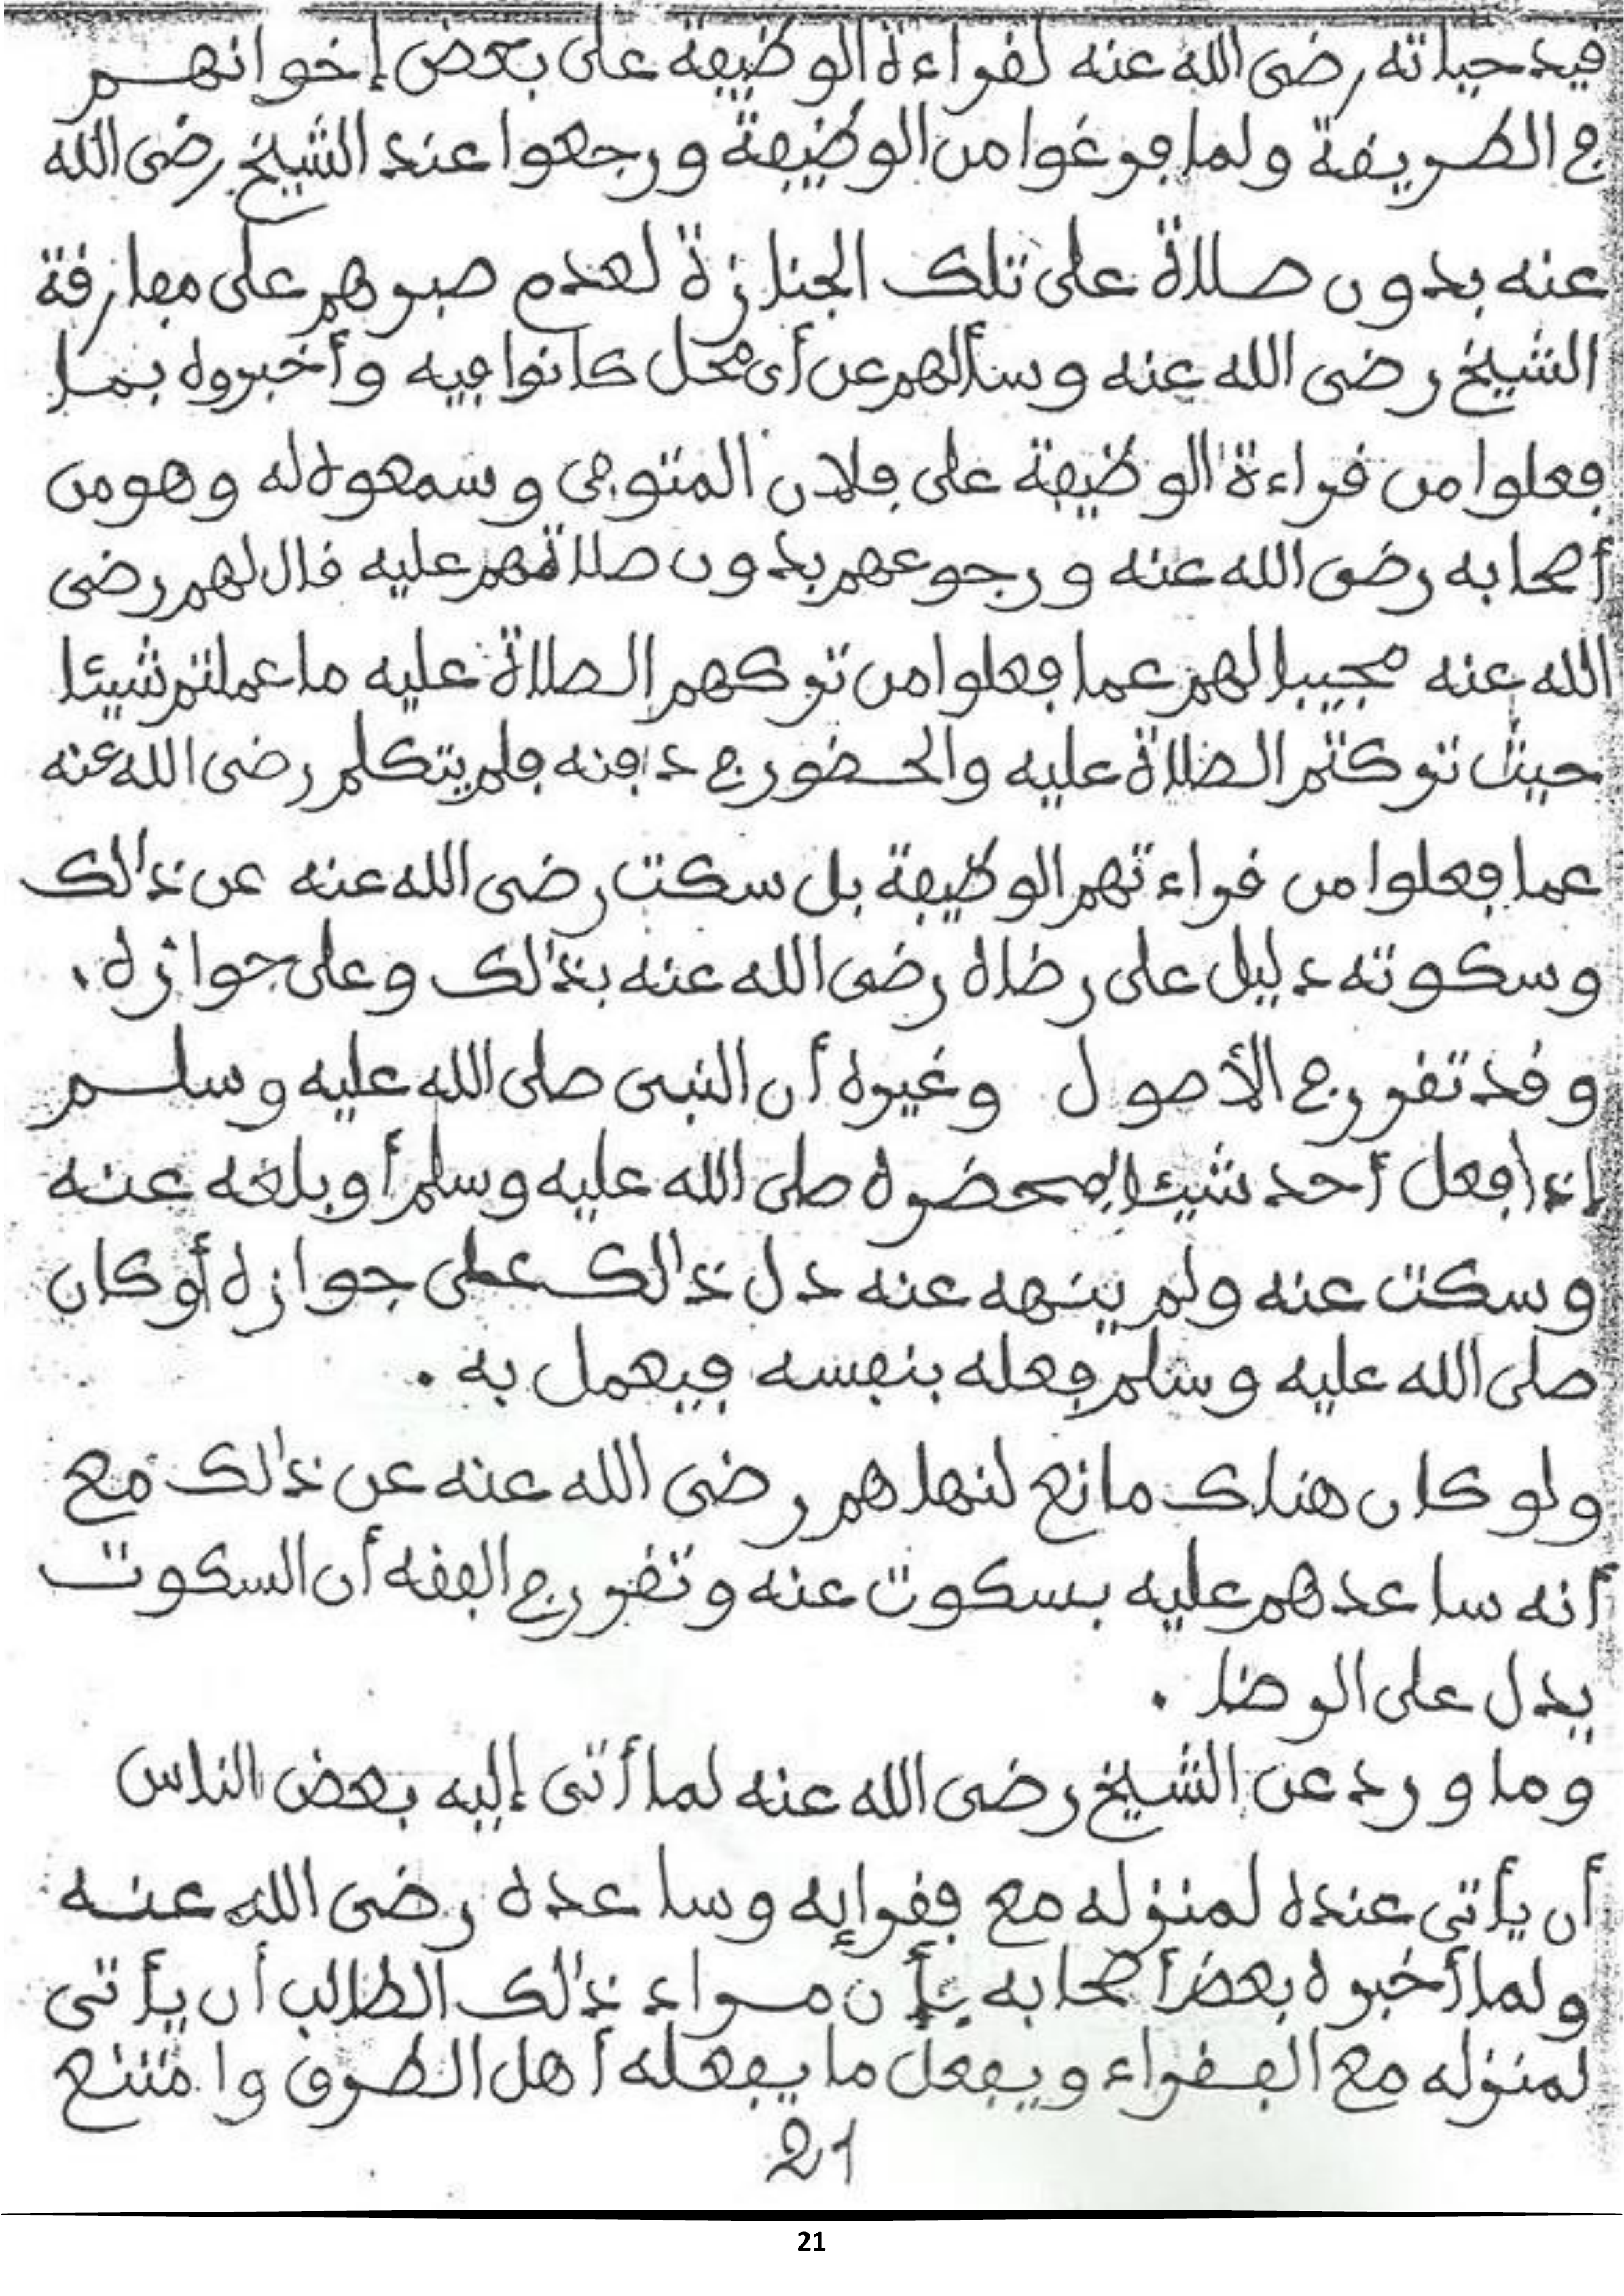 فيد حياته رضى الله عنه لقراءة الوظيفة على بعض إخوانهم
في الطريقة ولما فرغوا من الوظيفة ورجعوا عند الشيخ رضى الله
عنه بدون صلاة على تلك الجنازة لعدم صبرهم على مفارقة
الشيخ رضى الله عنه وسألهم عن أى محل كانوا فيه وأخبروه بما
فعلوا من قراءة الوظيفة على فلان المتوفى وسمعوه له وهو من
أصحابه رضى الله عنه ورجوعهم بدون صلاتهم عليه قال لهم رضى
الله عنه مجيبا لهم عما فعلوا من تركهم الصلاة عليه ما عملتم شيئا
حيث تركتم الصلاة عليه والحضور في دافنه فلم يتكلم رضى الله عنه
عما فعلوا من قراءتهم الوظيفة بل سكت رضى الله عنه عن ذالك
وسكوته دليل على رضاه رضى الله عنه بذالك وعلى جوازه،
وقد تقرر في الأصول وغيره أن النبى صلى الله عليه وسلم
إذا فعل أحد شيئا بمحضره صلى الله عليه وسلم أو بلغه عنه
وسكت عنه ولم ينهه عنه دل ذالك على جوازه أو كان
صلى الله عليه وسلم فعله بنفسه فيعمل به .
ولو كان هناك مانع لنهاهم رضى الله عنه عن ذالك مع
أنه ساعدهم عليه بسكوت عنه وتقرر في الفقه أن السكوت
يدل على الرضا .
وما ورد عن الشيخ رضى الله عنه لما أتى إليه بعض الناس
أن يأتى عنده لمنزله مع فقرايه وساعده رضى الله عنه
ولما أخبره بعض أصحابه بأن مراد ذالك الطالب أن يأتى
لمنزله مع الفقراء ويفعل ما يفعله أهل الطرق وامتنع
21
21